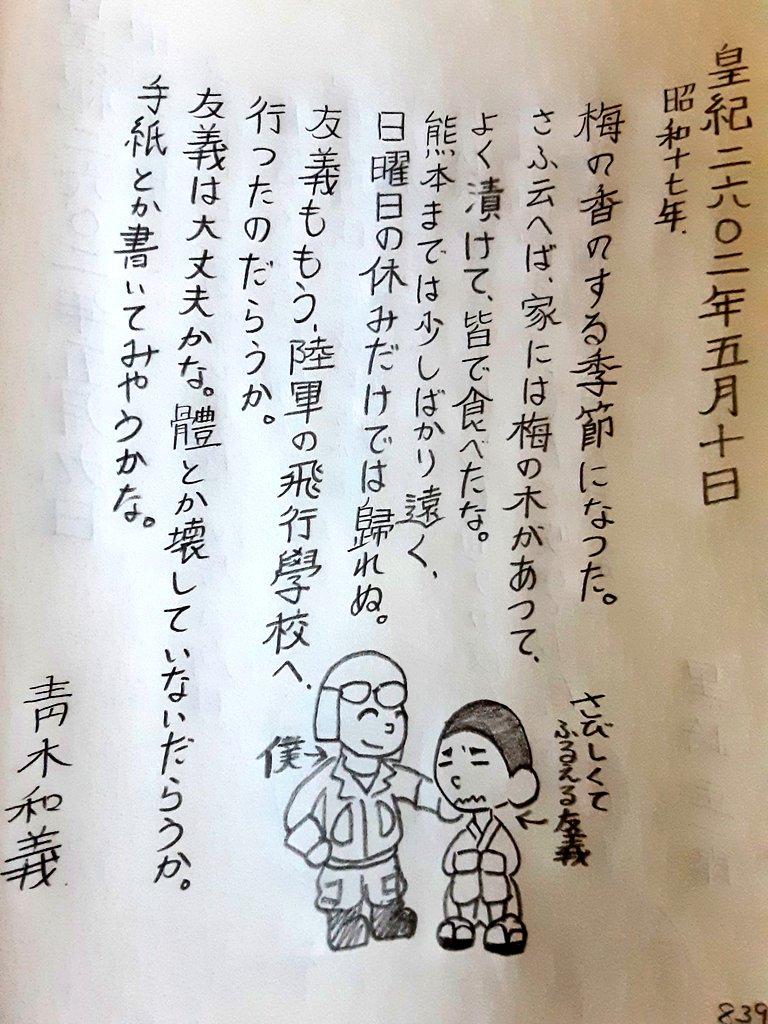 皇紀二六〇二年五月十日
昭和十七年.
梅の香のする季節になつた。
さふ云へば、家には梅の木があつて、
よく漬けて、皆で食べたな。
熊本までは少しばかり遠く、
日曜日の休みだけでは歸れぬ。
友義ももう、陸軍の飛行學校へ、
行つたのだらうか。
友義は大丈夫かな。體とか壊していないだらうか。
手紙とか書いてみやうかな。
青木和義.
さびしくて
ふるえる友義
僕
839